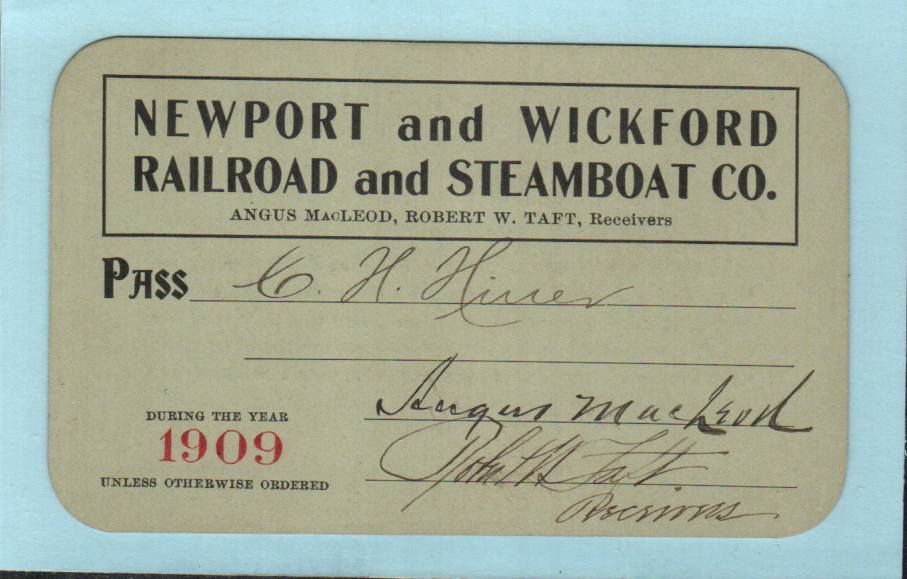 NEWPORT and WICKFORD
RAILROAD and STEAMBOAT CO.
ANGUS MACLEOD, ROBERT W. TAFT, Receivers
PASS C. H. Hiner
Angus MacLeod
DURING THE YEAR
1909
Robert W. Taft
UNLESS OTHERWISE ORDERED
Receivers